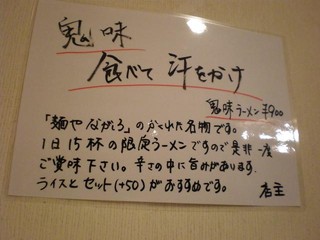 鬼味
食べて 汗をかけ
鬼味ラーメン ¥900
「麺や ながろ」のかくれた名物です。
1日15杯の限定ラーメンですので是非一度
ご賞味下さい。辛さの中に旨みがあります。
ライスとセット(+50)がおすすめです。 店主